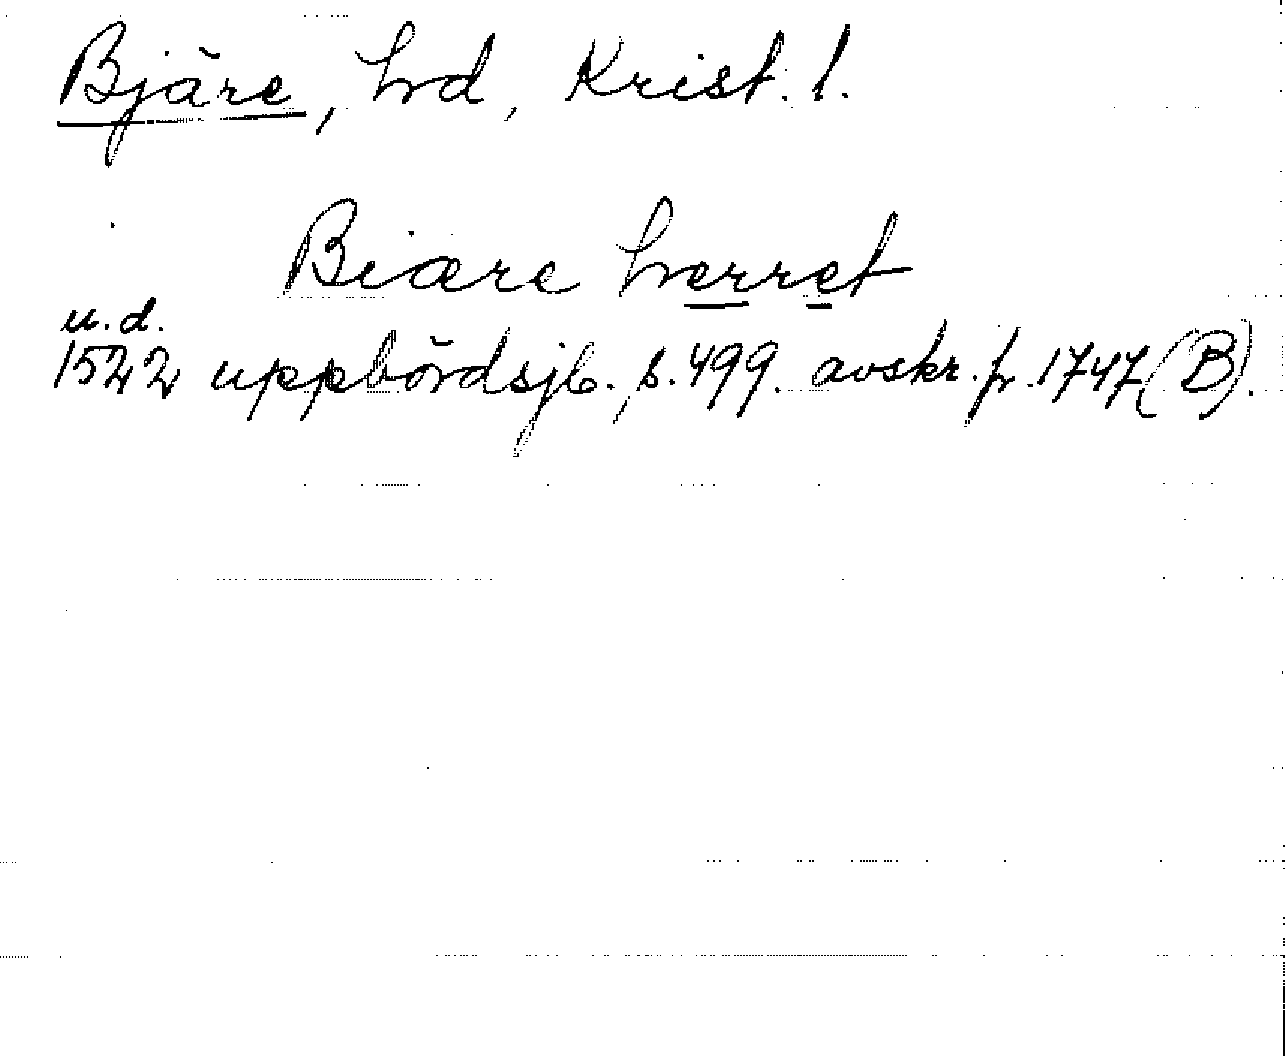 Bjäre, hd, Krist. l.
Biære herret
u.d.
1522 uppbördsjb. s. 499. avskr. fr. 1747 (B).